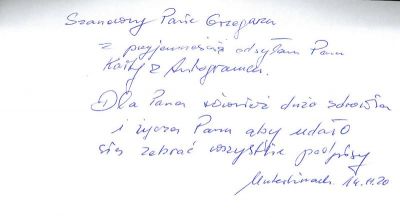 Szanowny Panie Grzegorzu
z przyjemnością odsyłam Panu
Kartę z Autografem.
Dla Pana również dużo zdrowia
i życzę Panu aby udało
się zebrać wszystkie podpisy
14.11.20